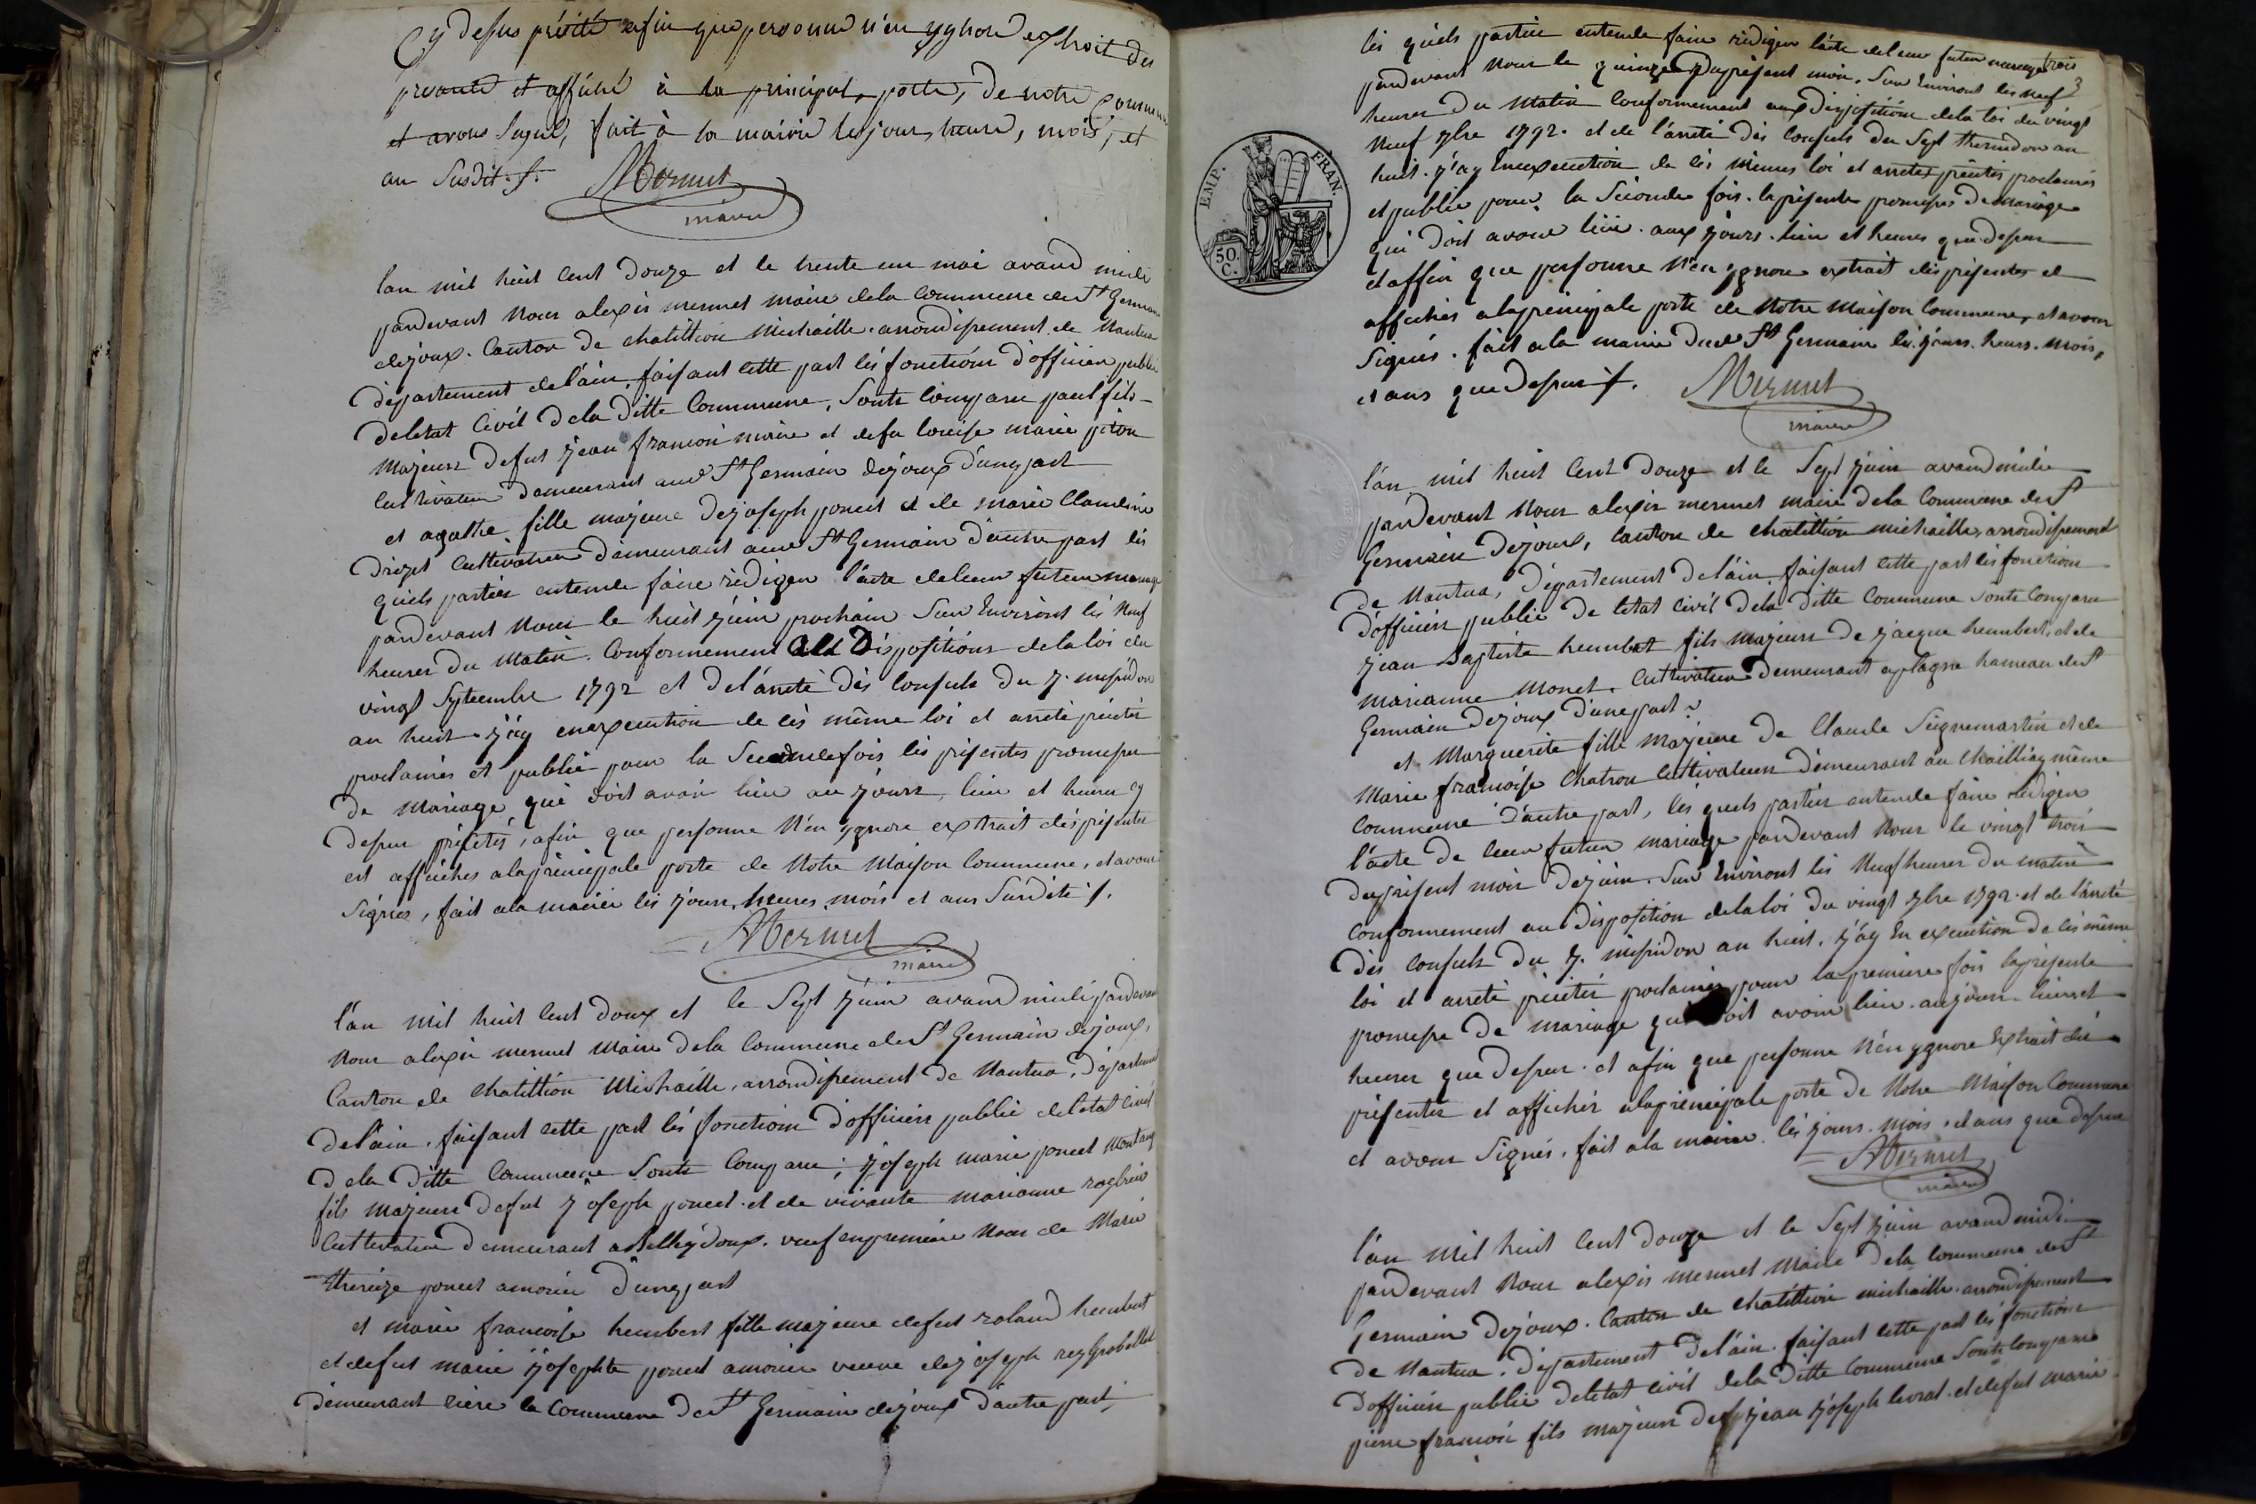 Cy desus précité afin que personne n'en ygnore exstroit des
presante et affiché à la principal, porte, de notre commune
et avons Signé, fait à la mairie les jour, heure, mois, et
an Susdit. /.
Mermet
maire
l'an mil huit Cent Douze et le trente un mai avand midi
pardevant Nous alexis mermet maire dela Commune de St Germain
dejoux. Canton de chatillion michaille. arrondissement de Nantua
département del'ain, faisant cette part lès fonctions d'officier public
deletat Civil dela ditte Commune, Sonts Comparu paul fils
Majeur defut jean francois maire et defu Louise marie piton
Cultivateur demeurant aud St Germain dejoux d'une part
et agathe fille majeure dejoseph poncet et de marie Claudine
Drizet Cultivateur demeurant aud St Germain d'autre part lès
quels parties entende faire rédiger l'acte deleur futeur mariage
pardevant Nous le huit juin prochain Sur Environt lès Neuf
heures du Matin. Conformement aux Dispositions delaloi du
vingt Septembre 1792 et de l'arreté dès Consuls du 7. messidor
an huit j'ay enexecution de cès même loi et arreté précités
proclamés et publié pour la Secondefois lès présentes promesse
de Mariage qui doit avoir lieu au jours, lieu et heures cy
desur précités, afin que personne N'en ygnore extrait dès présentes
est affiches alaprincipale porte de Notre Maison Commune, et avons
Signés, fait ala mairie lès jours, heures, mois et ans Susdits /.
Mermet
maire
l'an mil huit Cent douze et le Sept juin avand midi pardevant
Nous alexis mermet Maire dela Commune de St Germain dejoux,
Canton de chatillion Michaille, arrondissement de Nantua, département
del'ain, faisant cette part lès fonctions d'officier public deletat Civil
dela ditte Commune Sonts Comparu; joseph marie poncet Montang
fils majeur defut joseph poncet et de vivante marianne
Cultivateur demeurant a Belleydoux. veuf en première Noces de Marie
thereize poncet amorier d'une part
et marie francoise humbert fille majeure defut roland humbert
et defut marie josephte poncet amorier veuve dejoseph rey Grobellet
demeurant rière la Commune de St Germain dejoux d'autre part,
lès quels parties entende faire rédiger l'acte deleur futeur mariage trois
pardevant Nous le quinze Du présent mois, Sur Environt lès neuf
heures du Matin Conformement aux dispositions dela loi du vingt
Neuf 7bre 1792. et de l'arreté dès Consuls du Sept thermidor an
huit. j'ay Enexecution de cès mêmes loi et arretés précités proclamés
et publié pour la Séconde fois. la présente promesses De mariage
qui doit avoir lieu. aux jours. lieu et heures que desur
et affin que personne N'en ygnore extrait dès présentes et
affiches alaprincipale porte de Notre Maison Commune, et avons
Signés. fait ala mairie dud St Germain lès jours. heurs. mois,
et ans que Desur /.
Mermet
maire
EMP. FRAN.
50.
C.
l'an mil huit Cent Douze et le Sept juin avand midi
pardevant Nous alexis mermet maire dela Commune de St
Germain Dejoux, Canton de Chatillion michaille, arrondissement
de Nantua, Département del'ain faisant cette part lès fonctions
d'officier public de letat civil dela ditte Commune Sonts Comparu
jean Baptiste humbert fils majeur de jacque humbert et de
marianne Monet. Cultivateur Demeurant a plagne hameau de St
Germain Dejoux d'une part
et Marguerite fille Majeure de Claude Seignemartin et de
Marie francoise Chatron Cultivateur Demeurant au Chailliay même
Commune d'autre part, lès quels parties entende faire rédiger
l'acte de leur futeur mariage pardevant Nous le vingt trois
duprésent mois Dejuin. Sur Environt lès Neuf heures du matin
Conformement au disposition delaloi Du vingt 7bre 1792. et de l'arreté
dès Consuls du 7. messidor an huit, j'ay En execution de cès même
loi et arreté précités proclamés pour la premiere fois la présente
promesse De mariage qui Doit avoir lieu. aujours. lieu et
heures que Desur. et afin que personne N'en ygnore Extrait dès
présentes et affichés alaprincipale porte de Notre Maison Commune
et avons Signés, fait ala mairie lès jours. mois. et ans que desur
Mermet
maire
l'an Mil huit Cent Douze et le Sept juin avand midi
pardevant Nous alexis mermet Maire Dela Commune de St
Germain Dejoux. Canton de Chatillion michaille. arrondissement
de Nantua. Département Del'ain. faisant cette part lès fonctions
D'officier public deletat civil dela Ditte Commune Sonts Comparus
pierre francois fils majeur defut jean joseph livrat. et defut marie